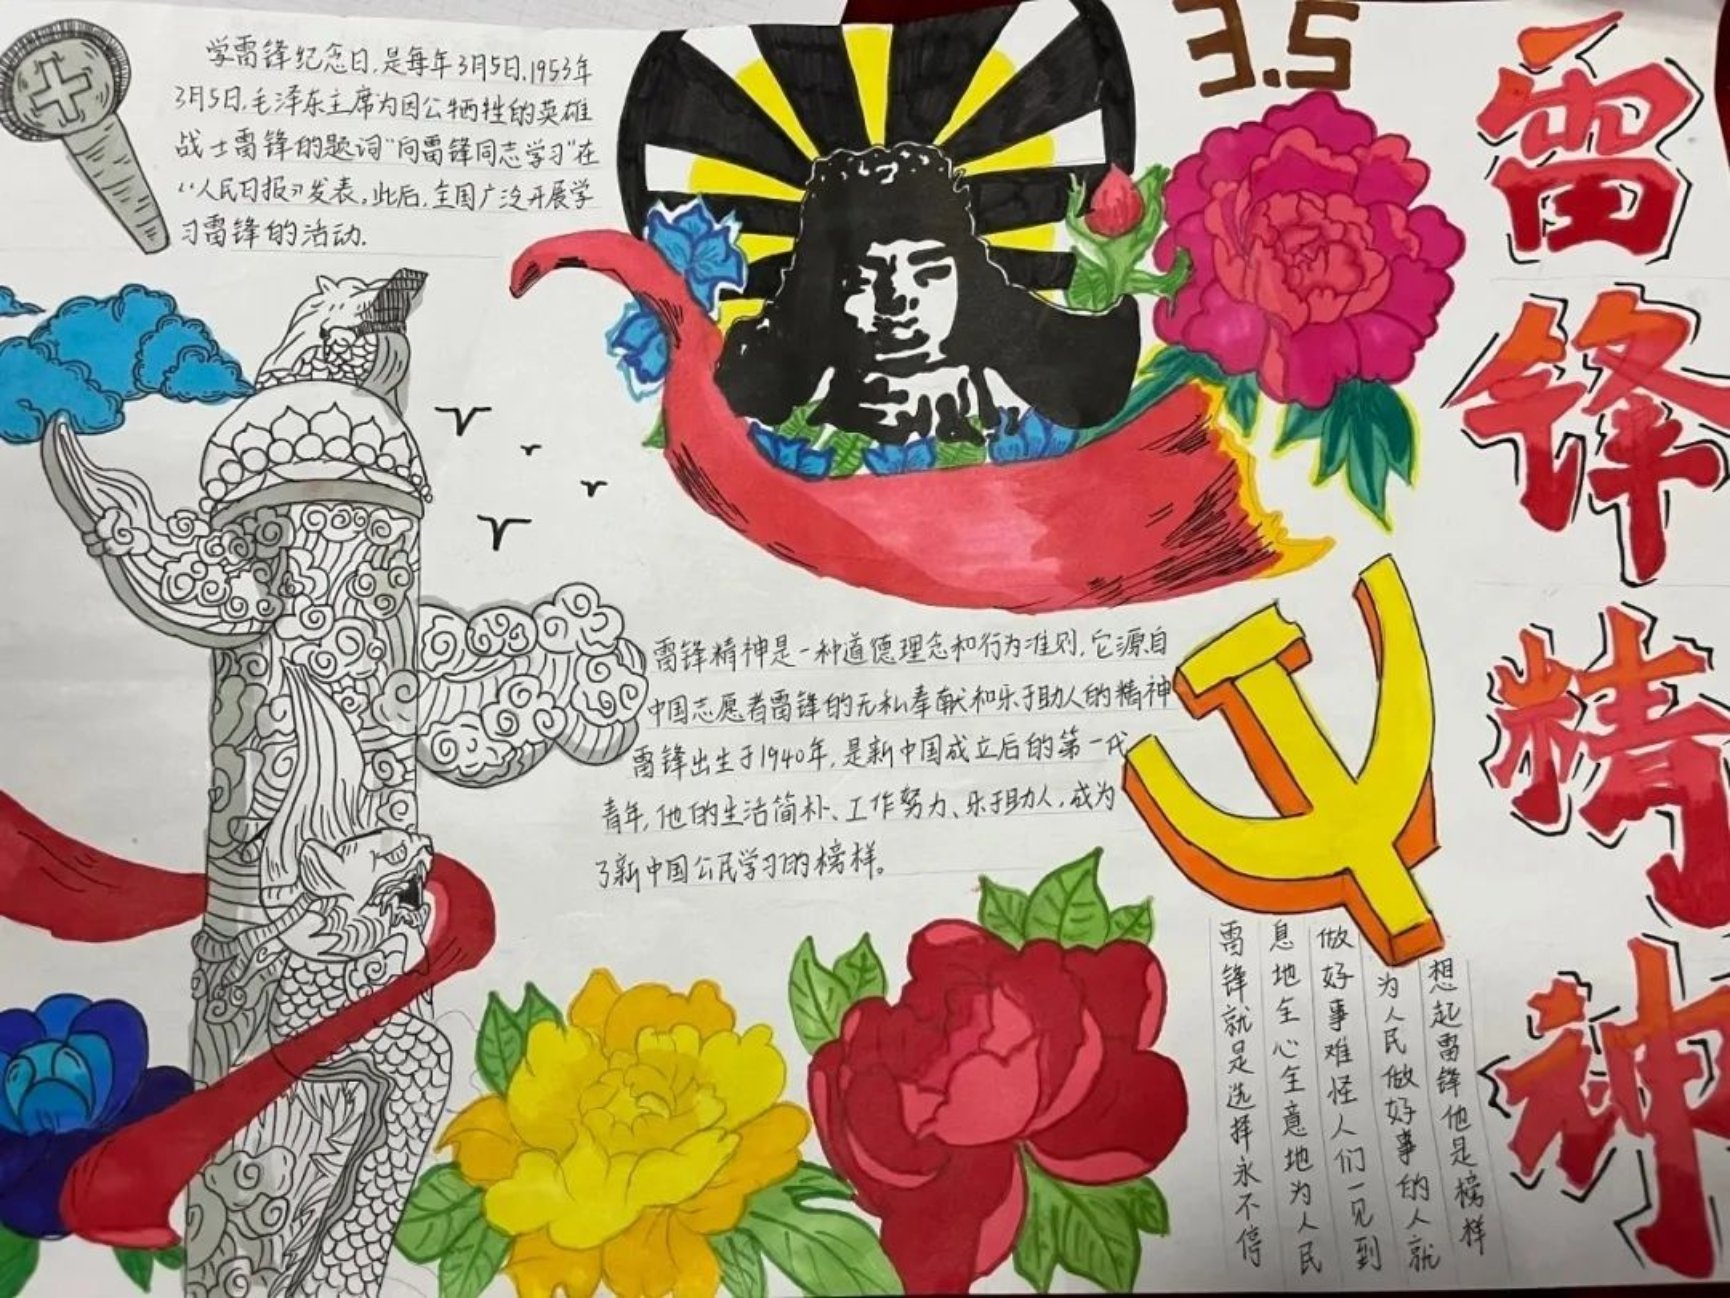 学雷锋纪念日,是每年3月5日,1953年
3月5日,毛泽东主席为因公牺牲的英雄
战士雷锋的题词“向雷锋同志学习”在
“人民日报”发表。此后,全国广泛开展学
习雷锋的活动.
3.5
雷锋精神
雷锋精神是一种道德理念和行为准则,它源自
中国志愿者雷锋的无私奉献和乐于助人的精神
雷锋出生于1940年,是新中国成立后的第一代
青年,他的生活简朴、工作努力、乐于助人,成为
了新中国公民学习的榜样。
雷锋就是选择永不停
息地全心全意地为人民
做好事难怪人们一见到
为人民做好事的人就
想起雷锋他是榜样